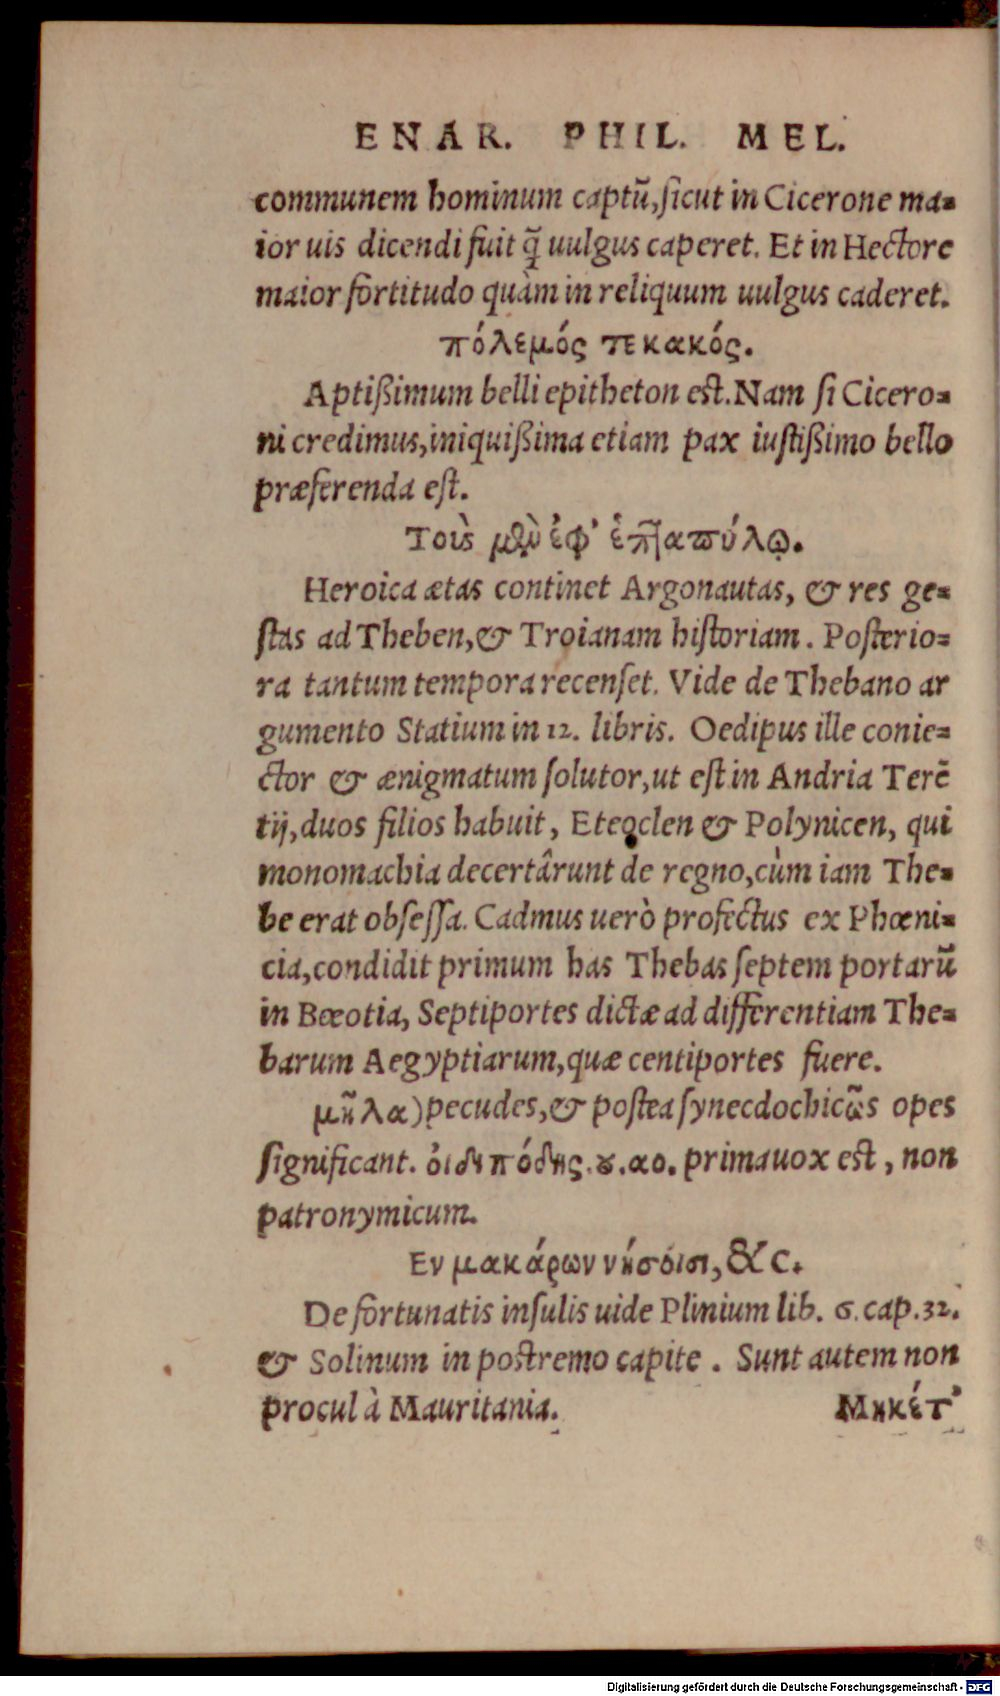 ENAR. PHIL. MEL.
communem hominum captũ, sicut in Cicerone ma-
ior uis dicendi fuit q̃ uulgus caperet. Et in Hectore
maior fortitudo quàm in reliquum uulgus caderet.
πόλεμός τε κακός.
Aptißimum belli epitheton est. Nam si Cicero-
ni credimus, iniquißima etiam pax iustißimo bello
præferenda est.
Τοὺς μὲν ἐφ' ἑπταπύλῳ.
Heroica ætas continet Argonautas, & res ge-
stas ad Theben, & Troianam historiam. Posterio-
ra tantum tempora recenset. Vide de Thebano ar
gumento Statium in 12. libris. Oedipus ille conie-
ctor & ænigmatum solutor, ut est in Andria Terẽ
tij, duos filios habuit, Eteoclen & Polynicen, qui
monomachia decertârunt de regno, cùm iam The-
be erat obsessa. Cadmus uerò profectus ex Phœni-
cia, condidit primum has Thebas septem portarũ
in Bœotia, Septiportes dictæ ad differentiam The-
barum Aegyptiarum, quæ centiportes fuere.
μῆλα) pecudes, & postea synecdochicῶs opes
significant. ὀιδιπόδης. ου. αο. prima uox est, non
patronymicum.
Εν μακάρων νήσοισι, &c.
De fortunatis insulis uide Plinium lib. 6. cap. 32.
& Solinum in postremo capite. Sunt autem non
procul à Mauritania. Μηκέτ'
Digitalisierung gefördert durch die Deutsche Forschungsgemeinschaft - DFG